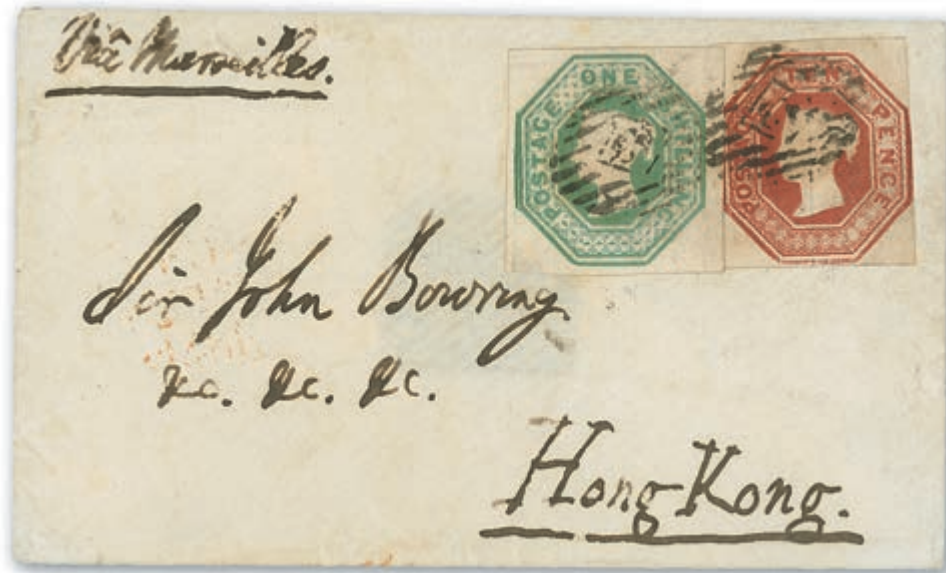 Viâ Marseilles.
POSTAGE ONE SHILLING
POSTAGE TEN PENCE
Sir John Bowring
&c. &c. &c.
Hong Kong.